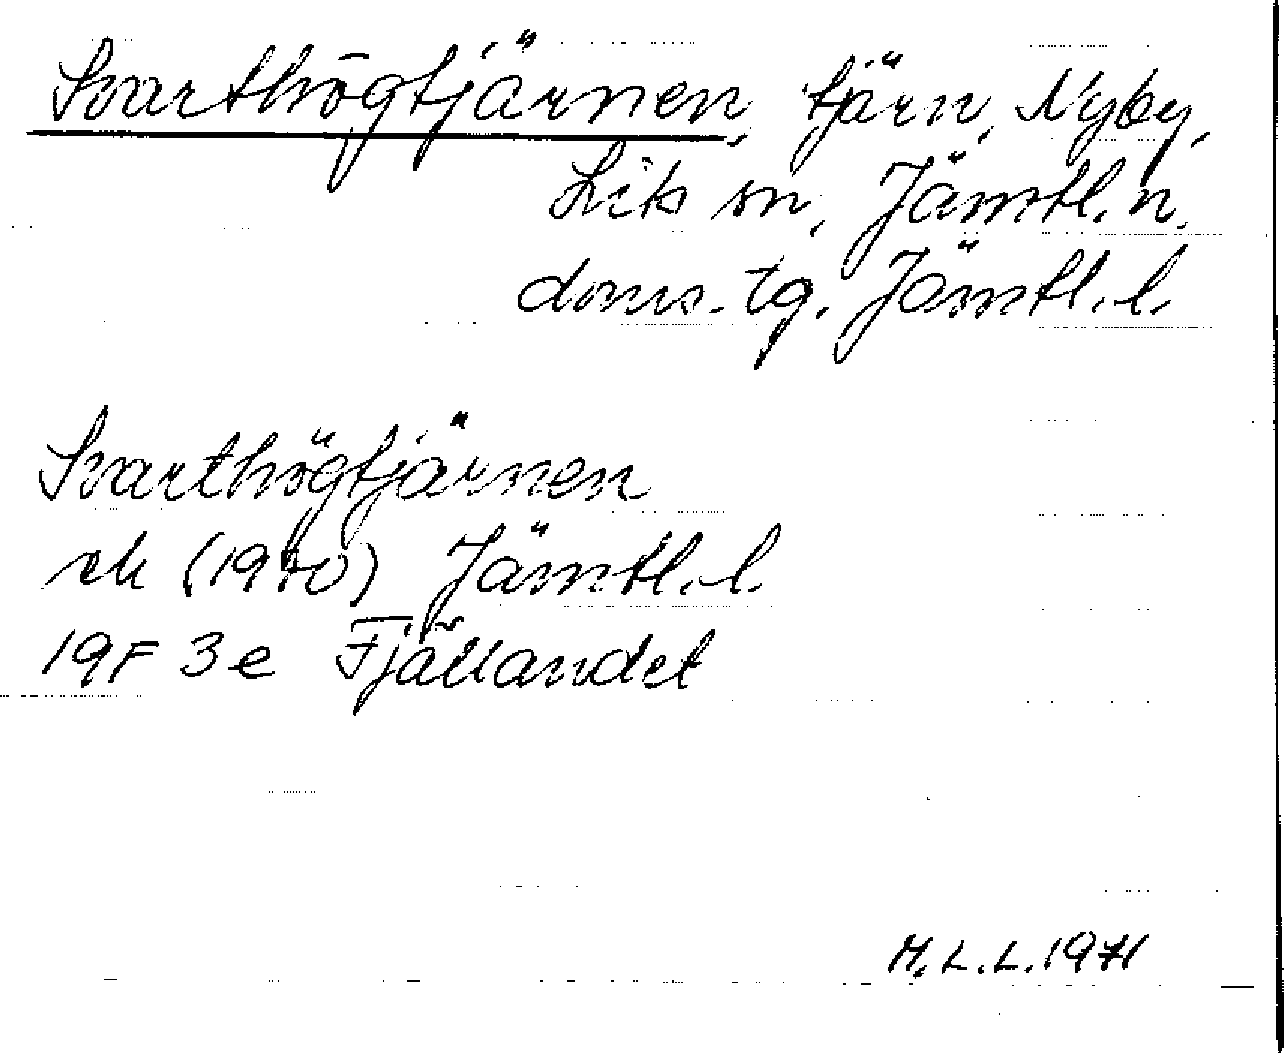 Svarthögtjärnen, tjärn, Nyby,
Lits sn, Jämtl. n.
doms. tg. Jämtl. l.
Svarthögtjärnen
ek (1970) Jämtl. l.
19F 3e Fjällandet
M.L.L. 1971